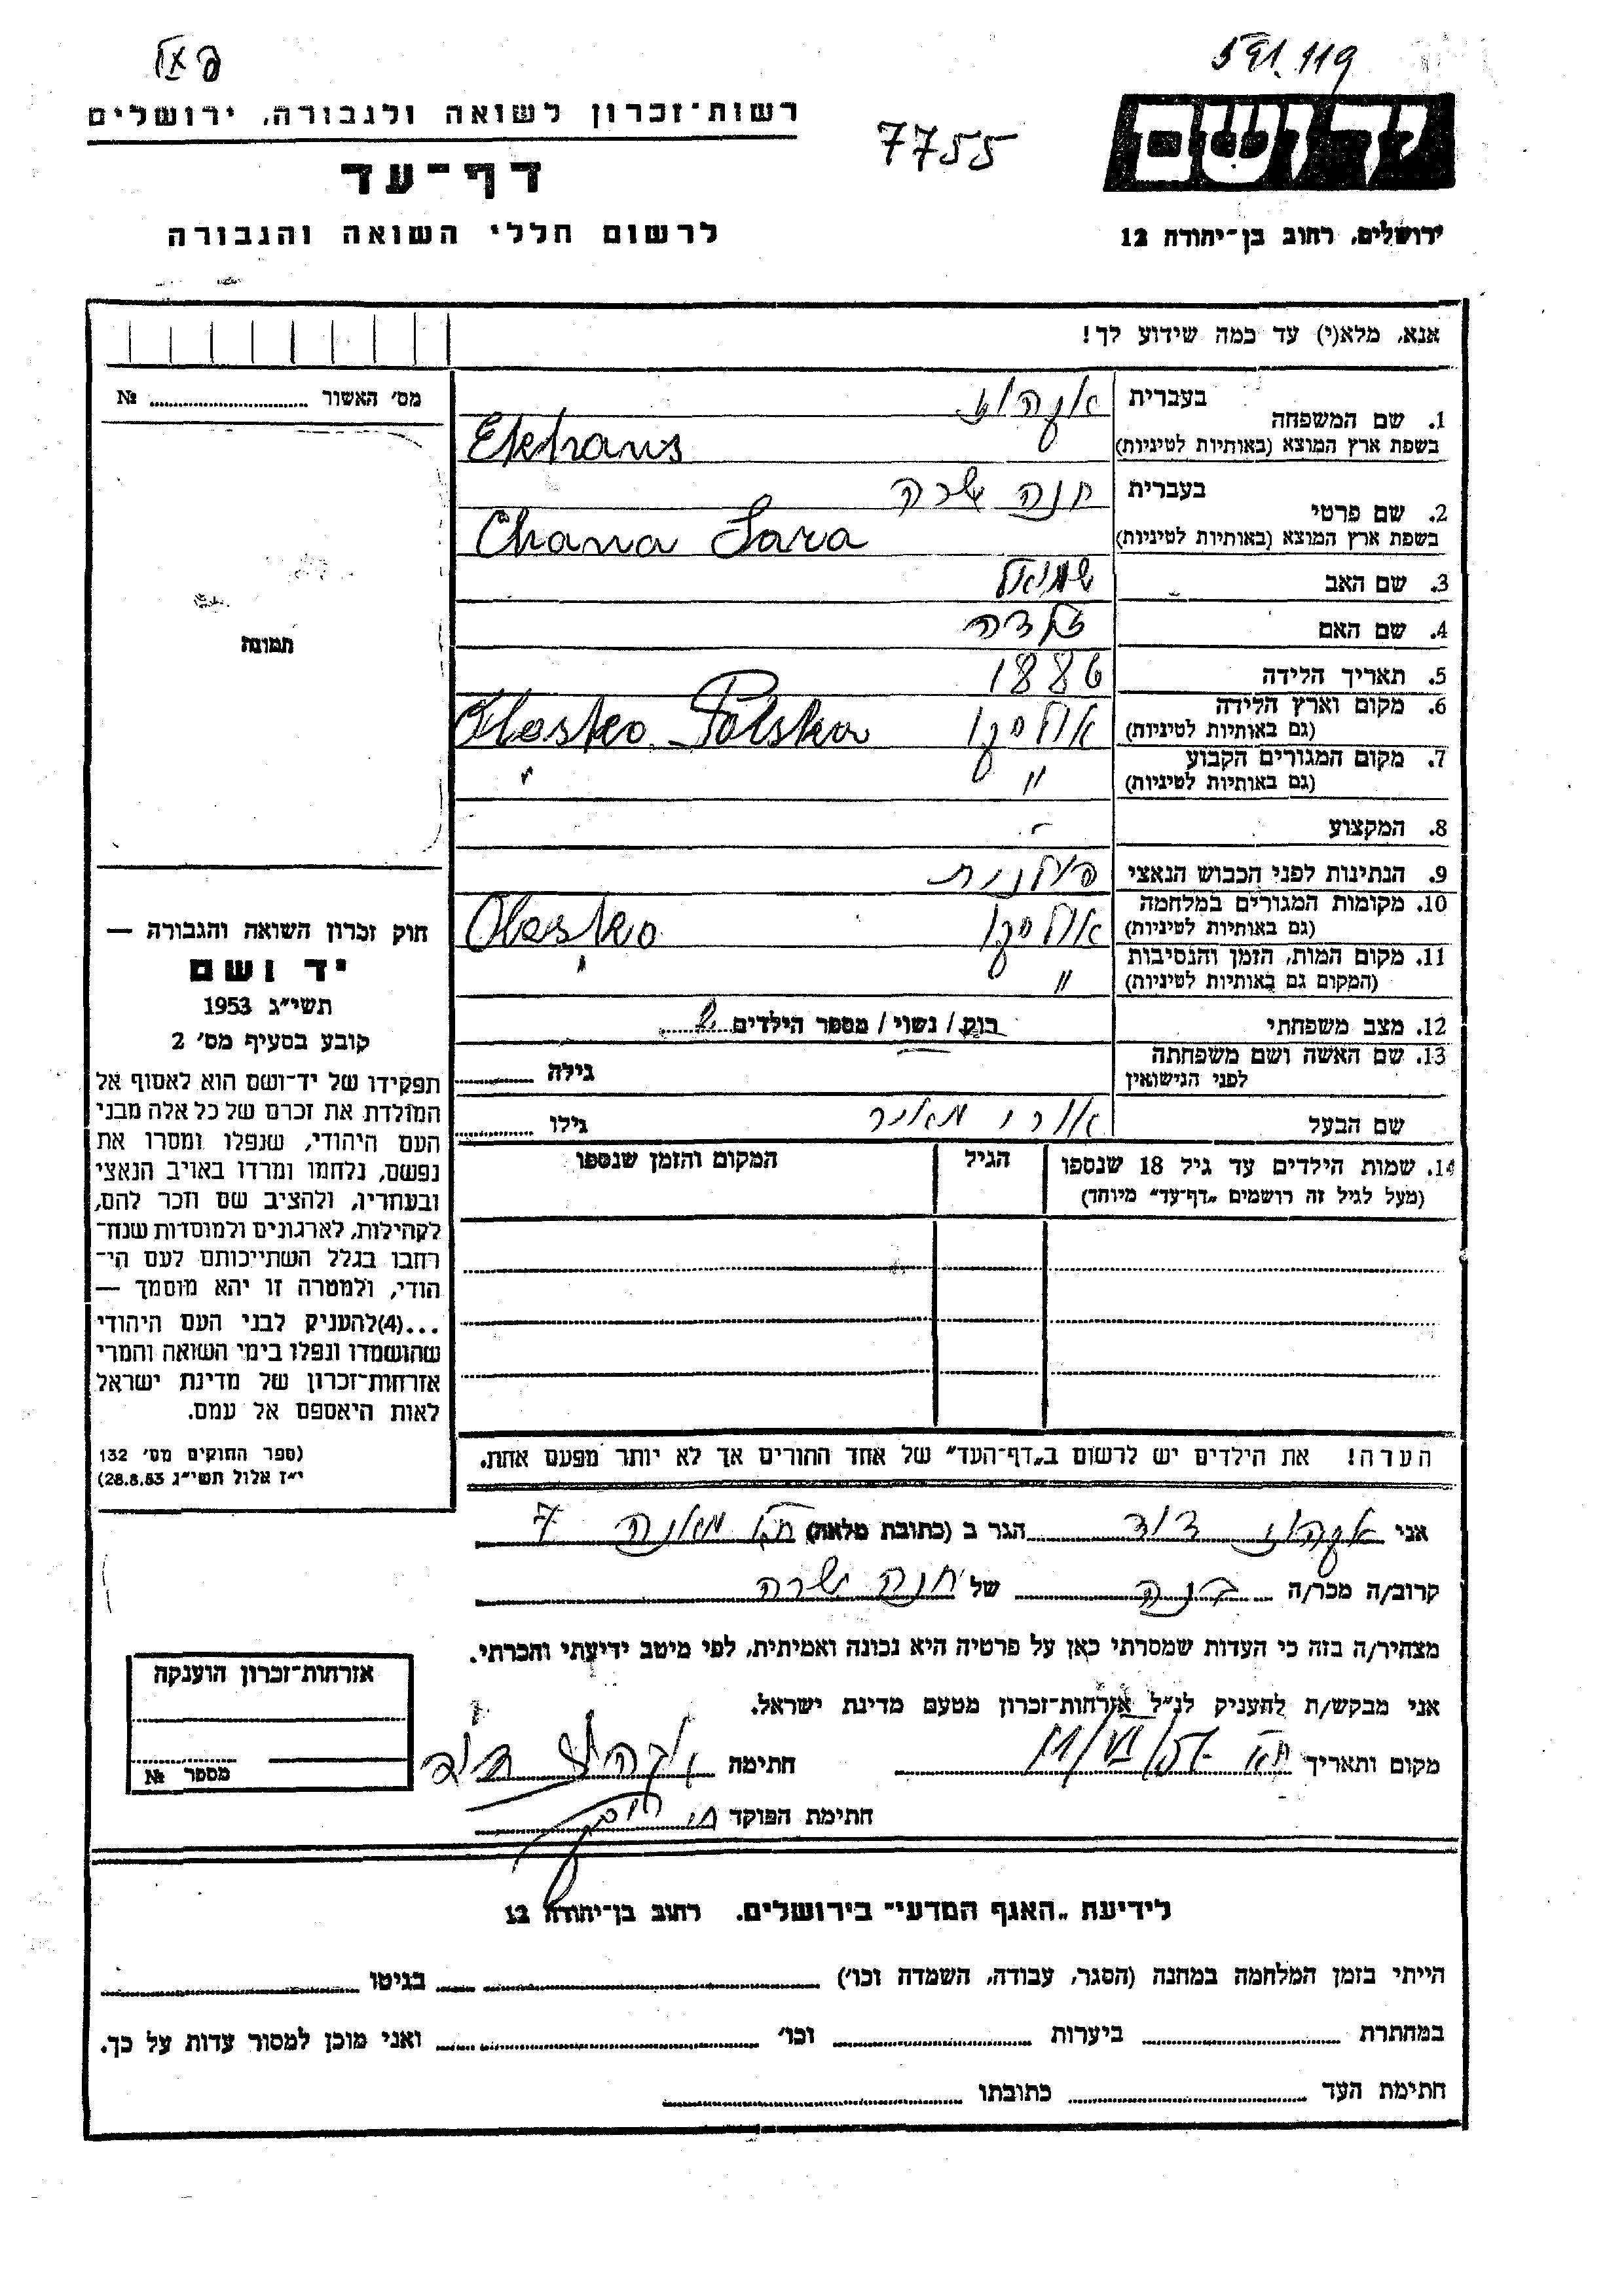 591.119
7755
יד ושם
רשות־זכרון לשואה ולגבורה, ירושלים
דף־עד
לרשום חללי השואה והגבורה
ירושלים, רחוב בן־יהודה 12
אנא, מלא(י) עד כמה שידוע לך!
מס׳ האשור № 
1. שם המשפחה
בעברית
בשפת ארץ המוצא (באותיות לטיניות)
2. שם פרטי
בעברית חנה שרה
בשפת ארץ המוצא (באותיות לטיניות) Chana Sara
3. שם האב שמואל
4. שם האם
5. תאריך הלידה 1886
6. מקום וארץ הלידה אולסקו Olesko Polska
(גם באותיות לטיניות)
7. מקום המגורים הקבוע " "
(גם באותיות לטיניות)
8. המקצוע -
9. הנתינות לפני הכבוש הנאצי פולנית
10. מקומות המגורים במלחמה אולסקו Olesko
(גם באותיות לטיניות)
11. מקום המות, הזמן והנסיבות " "
(המקום גם באותיות לטיניות)
12. מצב משפחתי רוק / נשוי / מספר הילדים 2
13. שם האשה ושם משפחתה
לפני הנישואין
גילה
שם הבעל אורי מאיר גילו
14. שמות הילדים עד גיל 18 שנספו
(מעל לגיל זה רושמים „דף־עד״ מיוחד)
הגיל
המקום והזמן שנספו
תמונה
חוק זכרון השואה והגבורה —
יד ושם
תשי״ג 1953
קובע בסעיף מס׳ 2
תפקידו של יד־ושם הוא לאסוף אל
המולדת את זכרם של כל אלה מבני
העם היהודי, שנפלו ומסרו את
נפשם, נלחמו ומרדו באויב הנאצי
ובעוזריו, ולהציב שם וזכר להם,
לקהילות, לארגונים ולמוסדות שנח־
רבו בגלל השתייכותם לעם הי־
הודי, ולמטרה זו יהא מוסמך —
...(4)להעניק לבני העם היהודי
שהושמדו ונפלו בימי השואה והמרי
אזרחות־זכרון של מדינת ישראל
לאות היאספם אל עמם.
(ספר החוקים מס׳ 132
י״ז אלול תשי״ג 28.8.53)
הערה! את הילדים יש לרשום ב„דף־העד״ של אחד ההורים אך לא יותר מפעם אחת.
אני דוד הגר ב (כתובת מלאה) 7
קרוב/ה מכר/ה בנה של חנה שרה
מצהיר/ה בזה כי העדות שמסרתי כאן על פרטיה היא נכונה ואמיתית, לפי מיטב ידיעתי והכרתי.
אני מבקש/ת להעניק לנ״ל אזרחות־זכרון מטעם מדינת ישראל.
מקום ותאריך
חתימה
חתימת הפוקד
אזרחות־זכרון הוענקה
מספר №
לידיעת „האגף המדעי״ בירושלים, רחוב בן־יהודה 12
הייתי בזמן המלחמה במחנה (הסגר, עבודה, השמדה וכו׳) בגיטו
במחתרת ביערות וכו׳ ואני מוכן למסור עדות על כך.
חתימת העד כתובתו